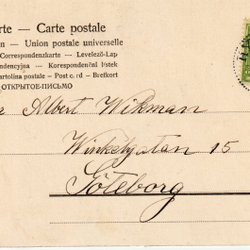 rte — Carte postale
n — Union postale universelle
Correspondenzkarte — Levelező-Lap
ndencyjna — Korespondenční lístek
artolina postale — Post card — Brefkort
ОТКРЫТОЕ ПИСЬМО
r Albert Wikman
Winkelgatan 15
Göteborg